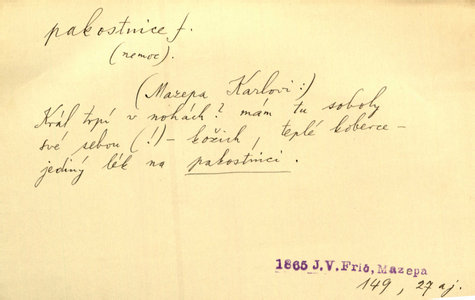 pakostnice f.
(nemoc).
(Mazepa Karlovi:)
Král trpí v nohách? mám tu soboly
své sebou (!) – kožich, teplé koberce –
jediný lék na pakostnici.
1865 J.V. Frič, Mazepa
149, 27 aj.